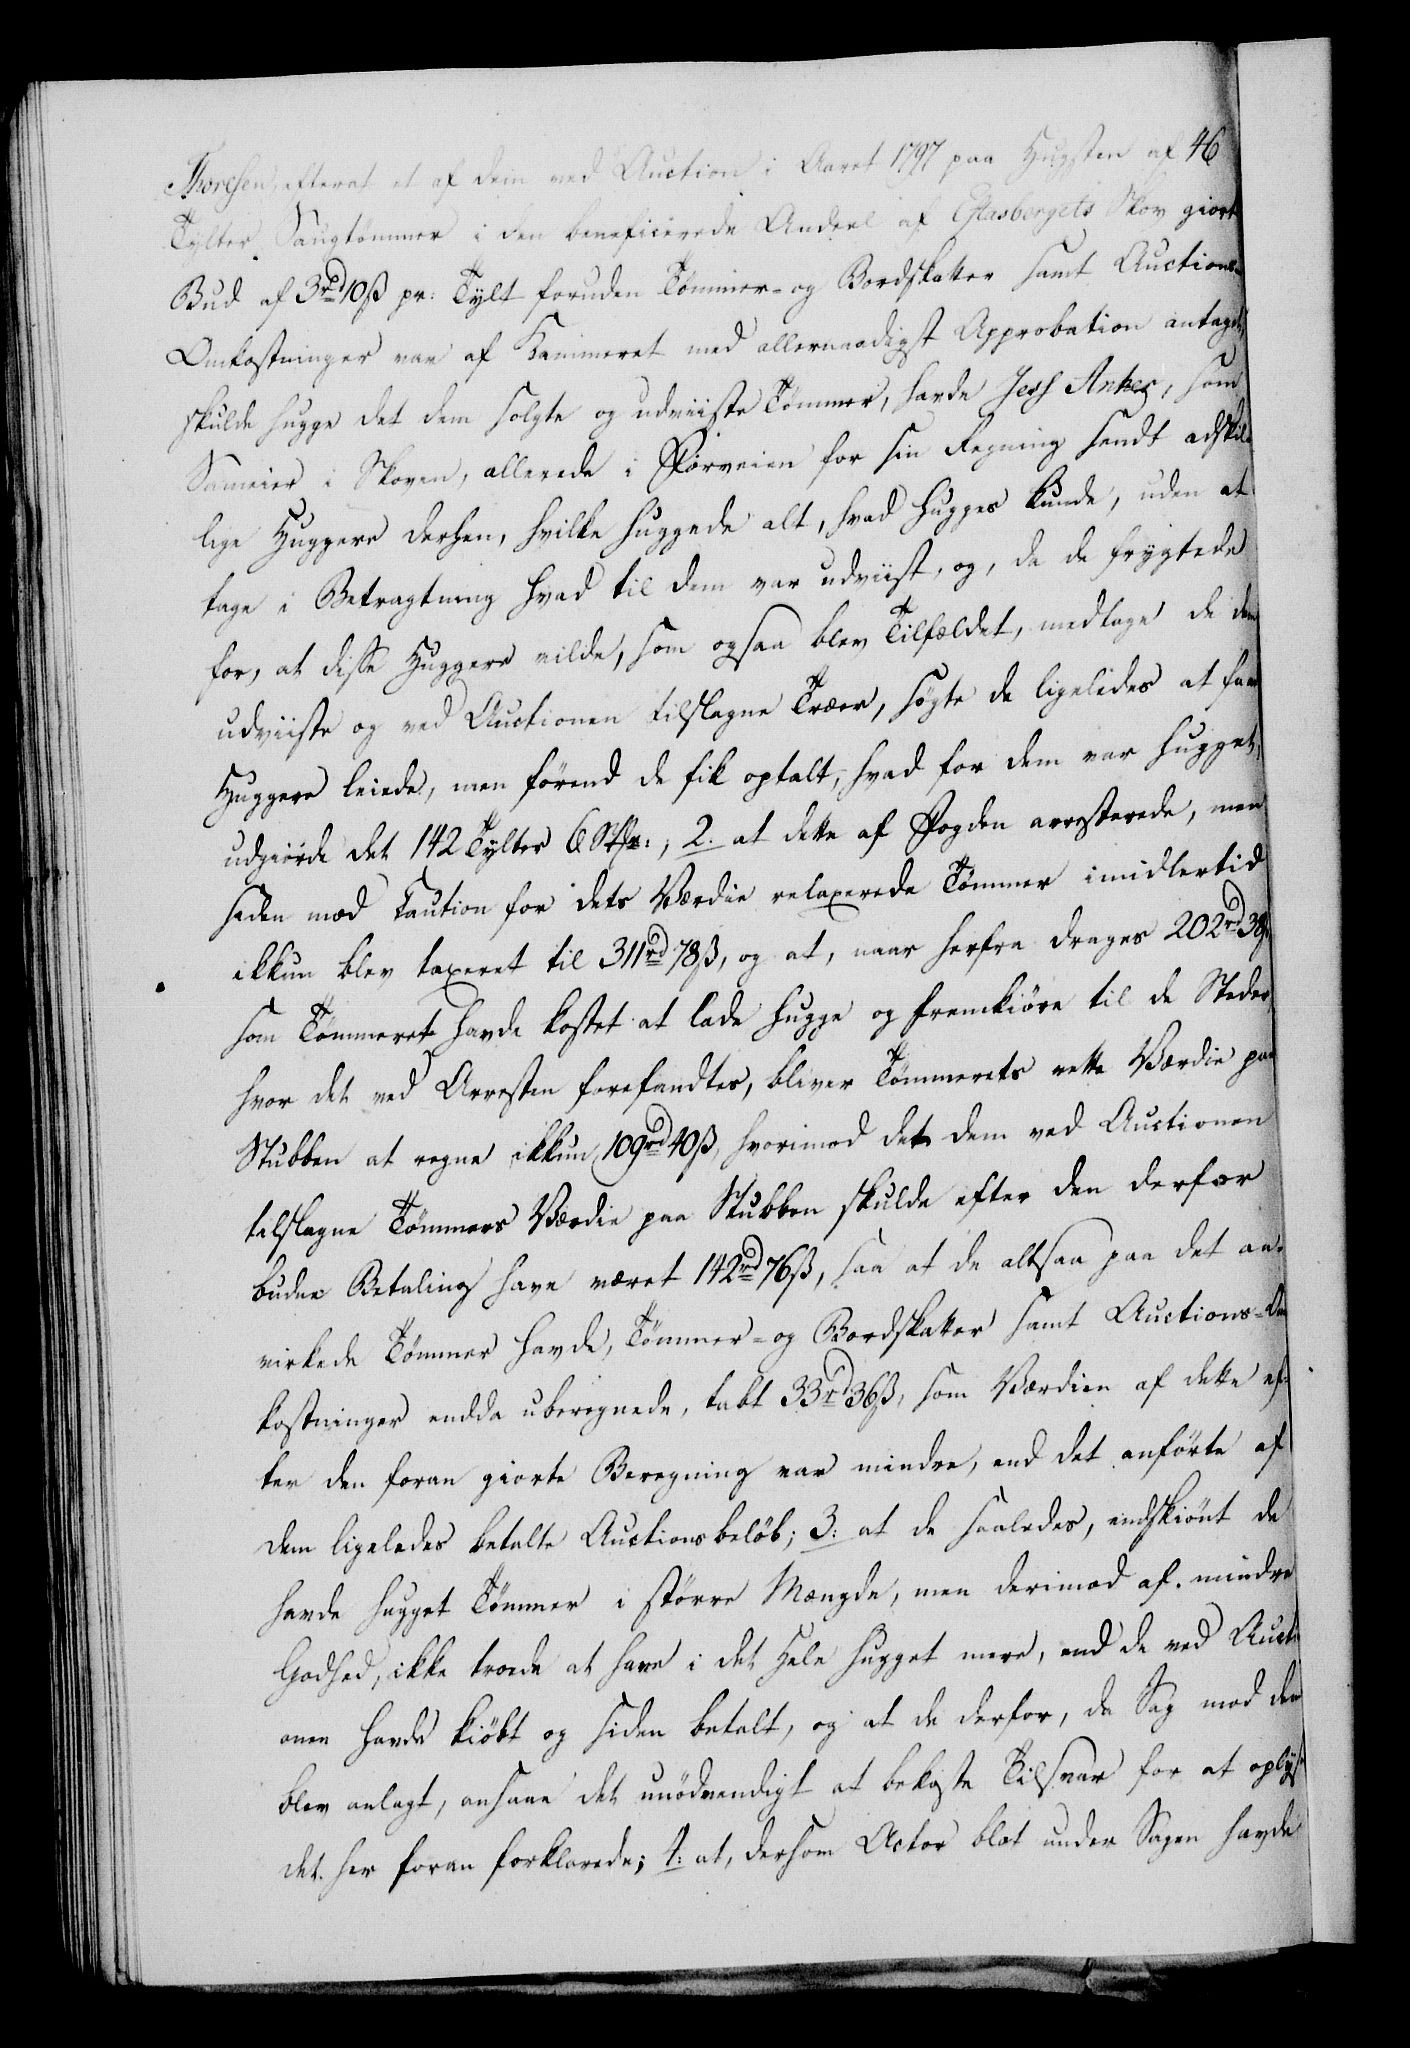 Thoresen, efterat et af dem ved Auction i Aaret 1797 paa Hugsten af 46
Tylter Saugtømmer i den beneficerede Andeel af Glasbergets Skov giort
Bud af 3rd 10ß pr: Tylt foruden Tømmer- og Bordskatter samt Auctions-
Omkostninger var af Kammeret med allernaadigst Approbation antaget,
skulde hugge det dem solgte og udviiste Tømmer, havde Jess Anker, som
Sameier i Skoven, allerede i Forveien for sin Regning sendt adskil-
lige Huggere derhen, hvilke huggede alt, hvad hugges kunde, uden at
tage i Betragtning hvad til dem var udviist, og, da de frygtede
for, at disse Huggere vilde, som ogsaa blev Tilfældet, medtage de dem
udviiste og ved Auctionen tilslagne Træer, søgte de ligeledes at faae
Huggere leiede, men førend de fik optalt, hvad for dem var hugget,
udgiørde det 142 Tylter 6 Stkr:, 2. at dette af Fogden arresterede, men
siden mod Caution for dets Værdie relaxerede Tømmer imidlertid
ikkun blev taxeret til 311rd 78ß, og at, naar herfra drages 202rd 38ß,
som Tømmeret havde kostet at lade hugge og fremkiøre til de Steder,
hvor det ved Arresten forefandtes, bliver Tømmerets rette Værdie paa
Stubben at regne ikkun 109rd 40ß, hvorimod det dem ved Auctionen
tilslagne Tømmers Værdie paa Stubben skulde efter den derfor
budne Betaling have været 142rd 76ß, saa at de altsaa paa det an-
virkede Tømmer havde, Tømmer- og Bordskatter samt Auctions-Om-
kostninger endda uberegnede, tabt 33rd 36ß, som Værdien af dette ef-
ter den foran giorte Beregning var mindre, end det anførte af
dem ligeledes betalte Auctionsbeløb; 3: at de saaledes, endskiønt de
havde hugget Tømmer i større Mængde, men derimod af mindre
Godhed, ikke troede at have i det Hele hugget mere, end de ved Aucti-
onen havde kiøbt og siden betalt, og at de derfor, da Sag mod dem
blev anlagt, ansaae det unødvendigt at bekoste Tilsvar for at oplyse
det her foran forklarede; 4: at, dersom Actor blot under Sagen havde